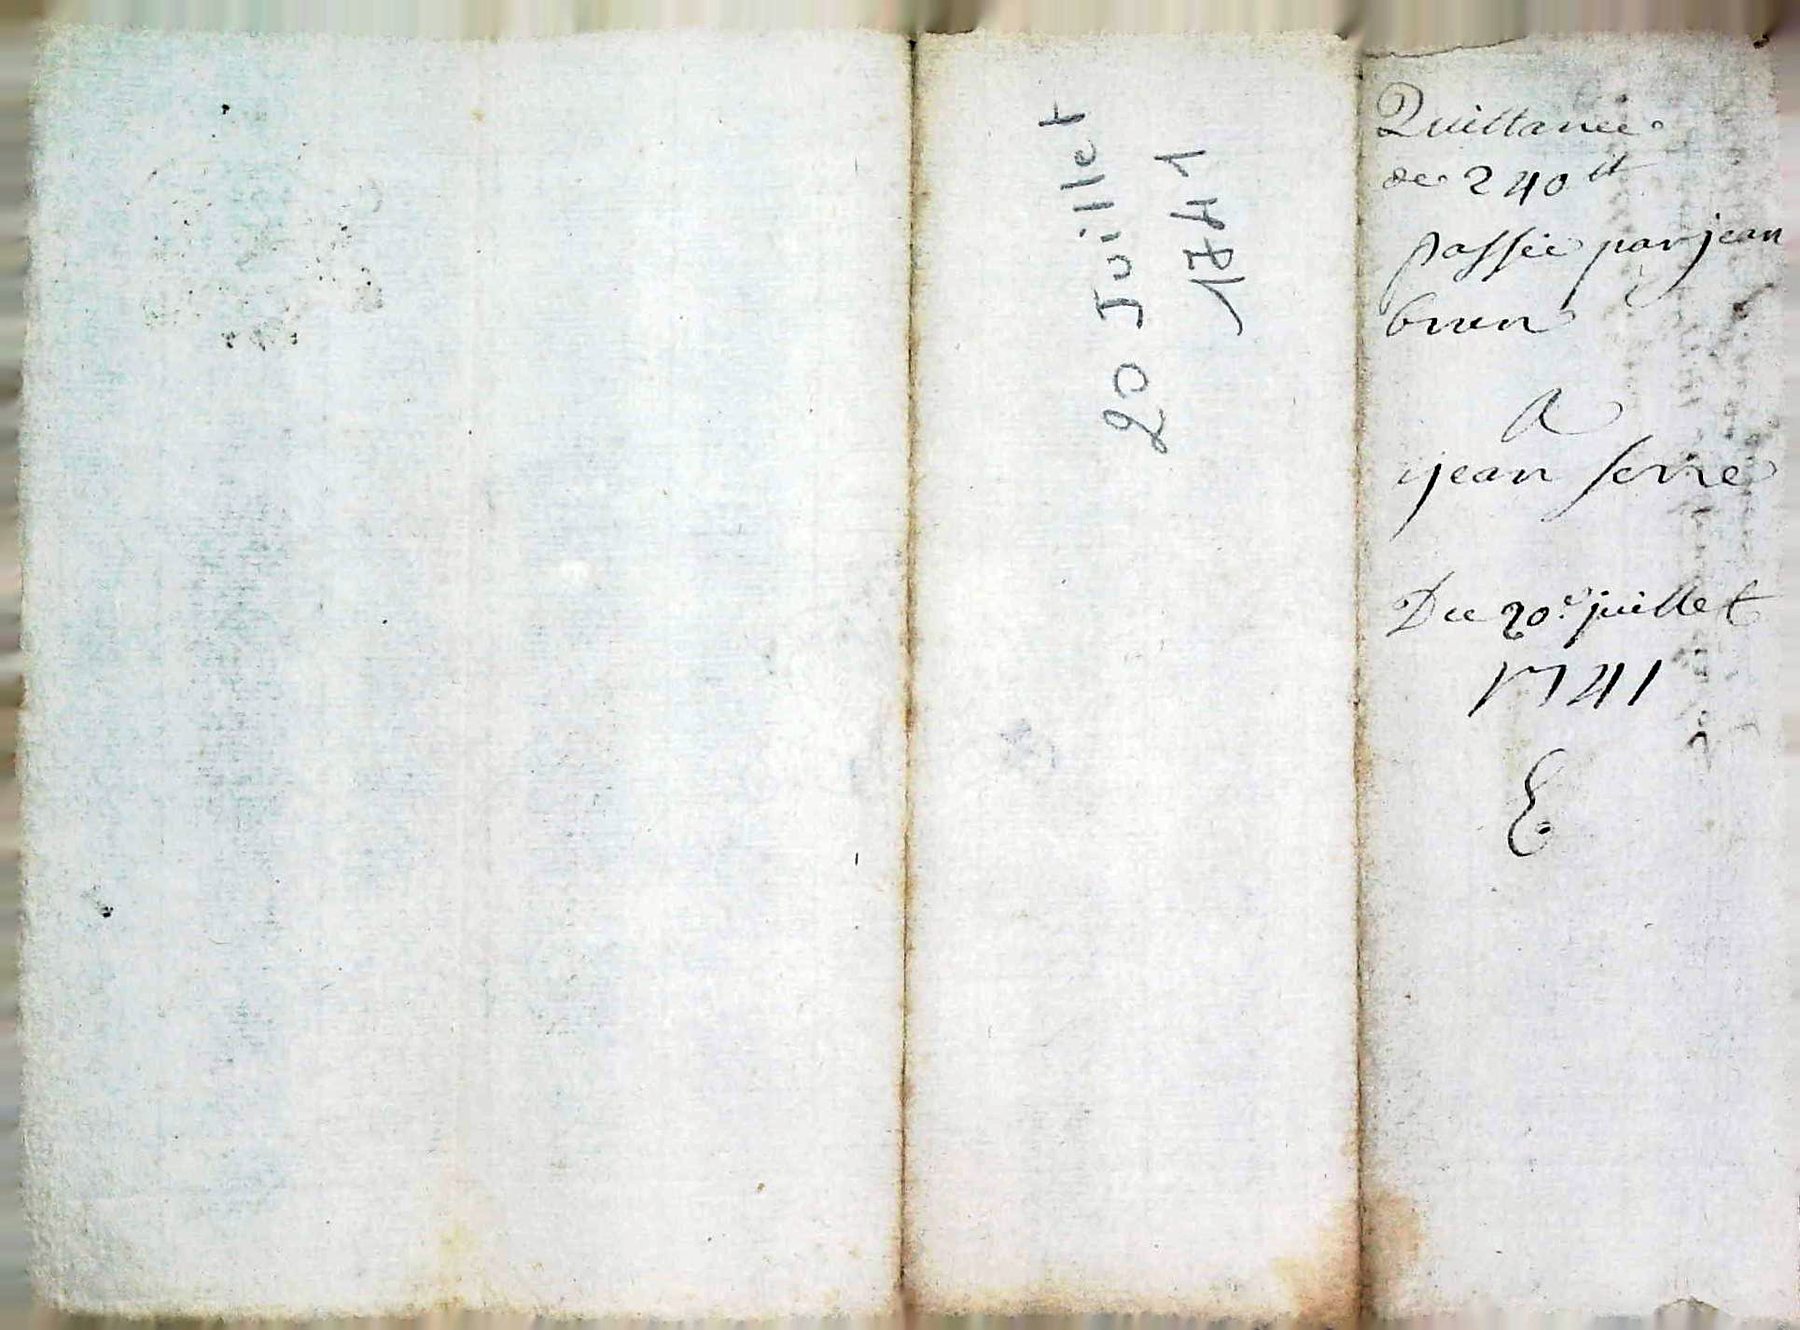 20 Juillet
1741
Quittance
de 240 ₶
passée par jean
brun
A
jean serre
Du 20e juillet
1741
E